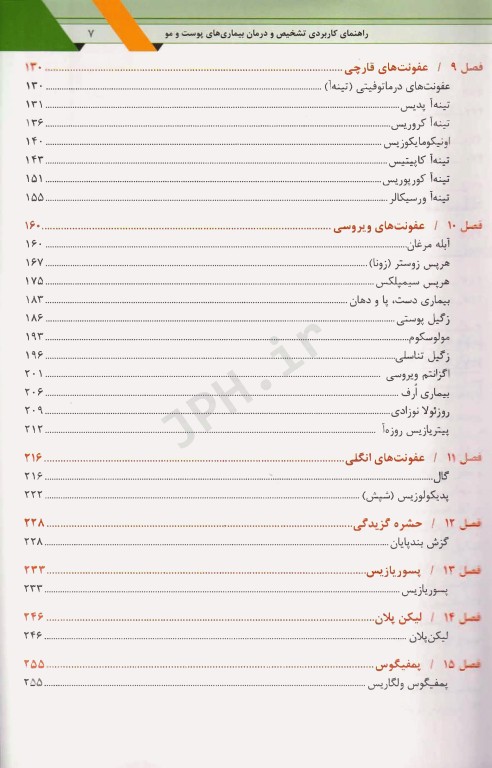 راهنمای کاربردی تشخیص و درمان بیماری‌های پوست و مو ۷
فصل ۹ / عفونت‌های قارچی ۱۳۰
عفونت‌های درماتوفیتی (تینه‌آ) ۱۳۰
تینه‌آ پدیس ۱۳۱
تینه‌آ کروریس ۱۳۶
اونیکومایکوزیس ۱۴۰
تینه‌آ کاپیتیس ۱۴۳
تینه‌آ کورپوریس ۱۵۱
تینه‌آ ورسیکالر ۱۵۵
فصل ۱۰ / عفونت‌های ویروسی ۱۶۰
آبله مرغان ۱۶۰
هرپس زوستر (زونا) ۱۶۷
هرپس سیمپلکس ۱۷۵
بیماری دست، پا و دهان ۱۸۳
زگیل پوستی ۱۸۶
مولوسکوم ۱۹۳
زگیل تناسلی ۱۹۶
اگزانتم ویروسی ۲۰۱
بیماری اُرف ۲۰۶
روزئولا نوزادی ۲۰۹
پیتریازیس روزه‌آ ۲۱۲
فصل ۱۱ / عفونت‌های انگلی ۲۱۶
گال ۲۱۶
پدیکولوزیس (شپش) ۲۲۲
فصل ۱۲ / حشره گزیدگی ۲۲۸
گزش بندپایان ۲۲۸
فصل ۱۳ / پسوریازیس ۲۳۳
پسوریازیس ۲۳۳
فصل ۱۴ / لیکن پلان ۲۴۶
لیکن‌پلان ۲۴۶
فصل ۱۵ / پمفیگوس ۲۵۵
پمفیگوس ولگاریس ۲۵۵
JPH.ir